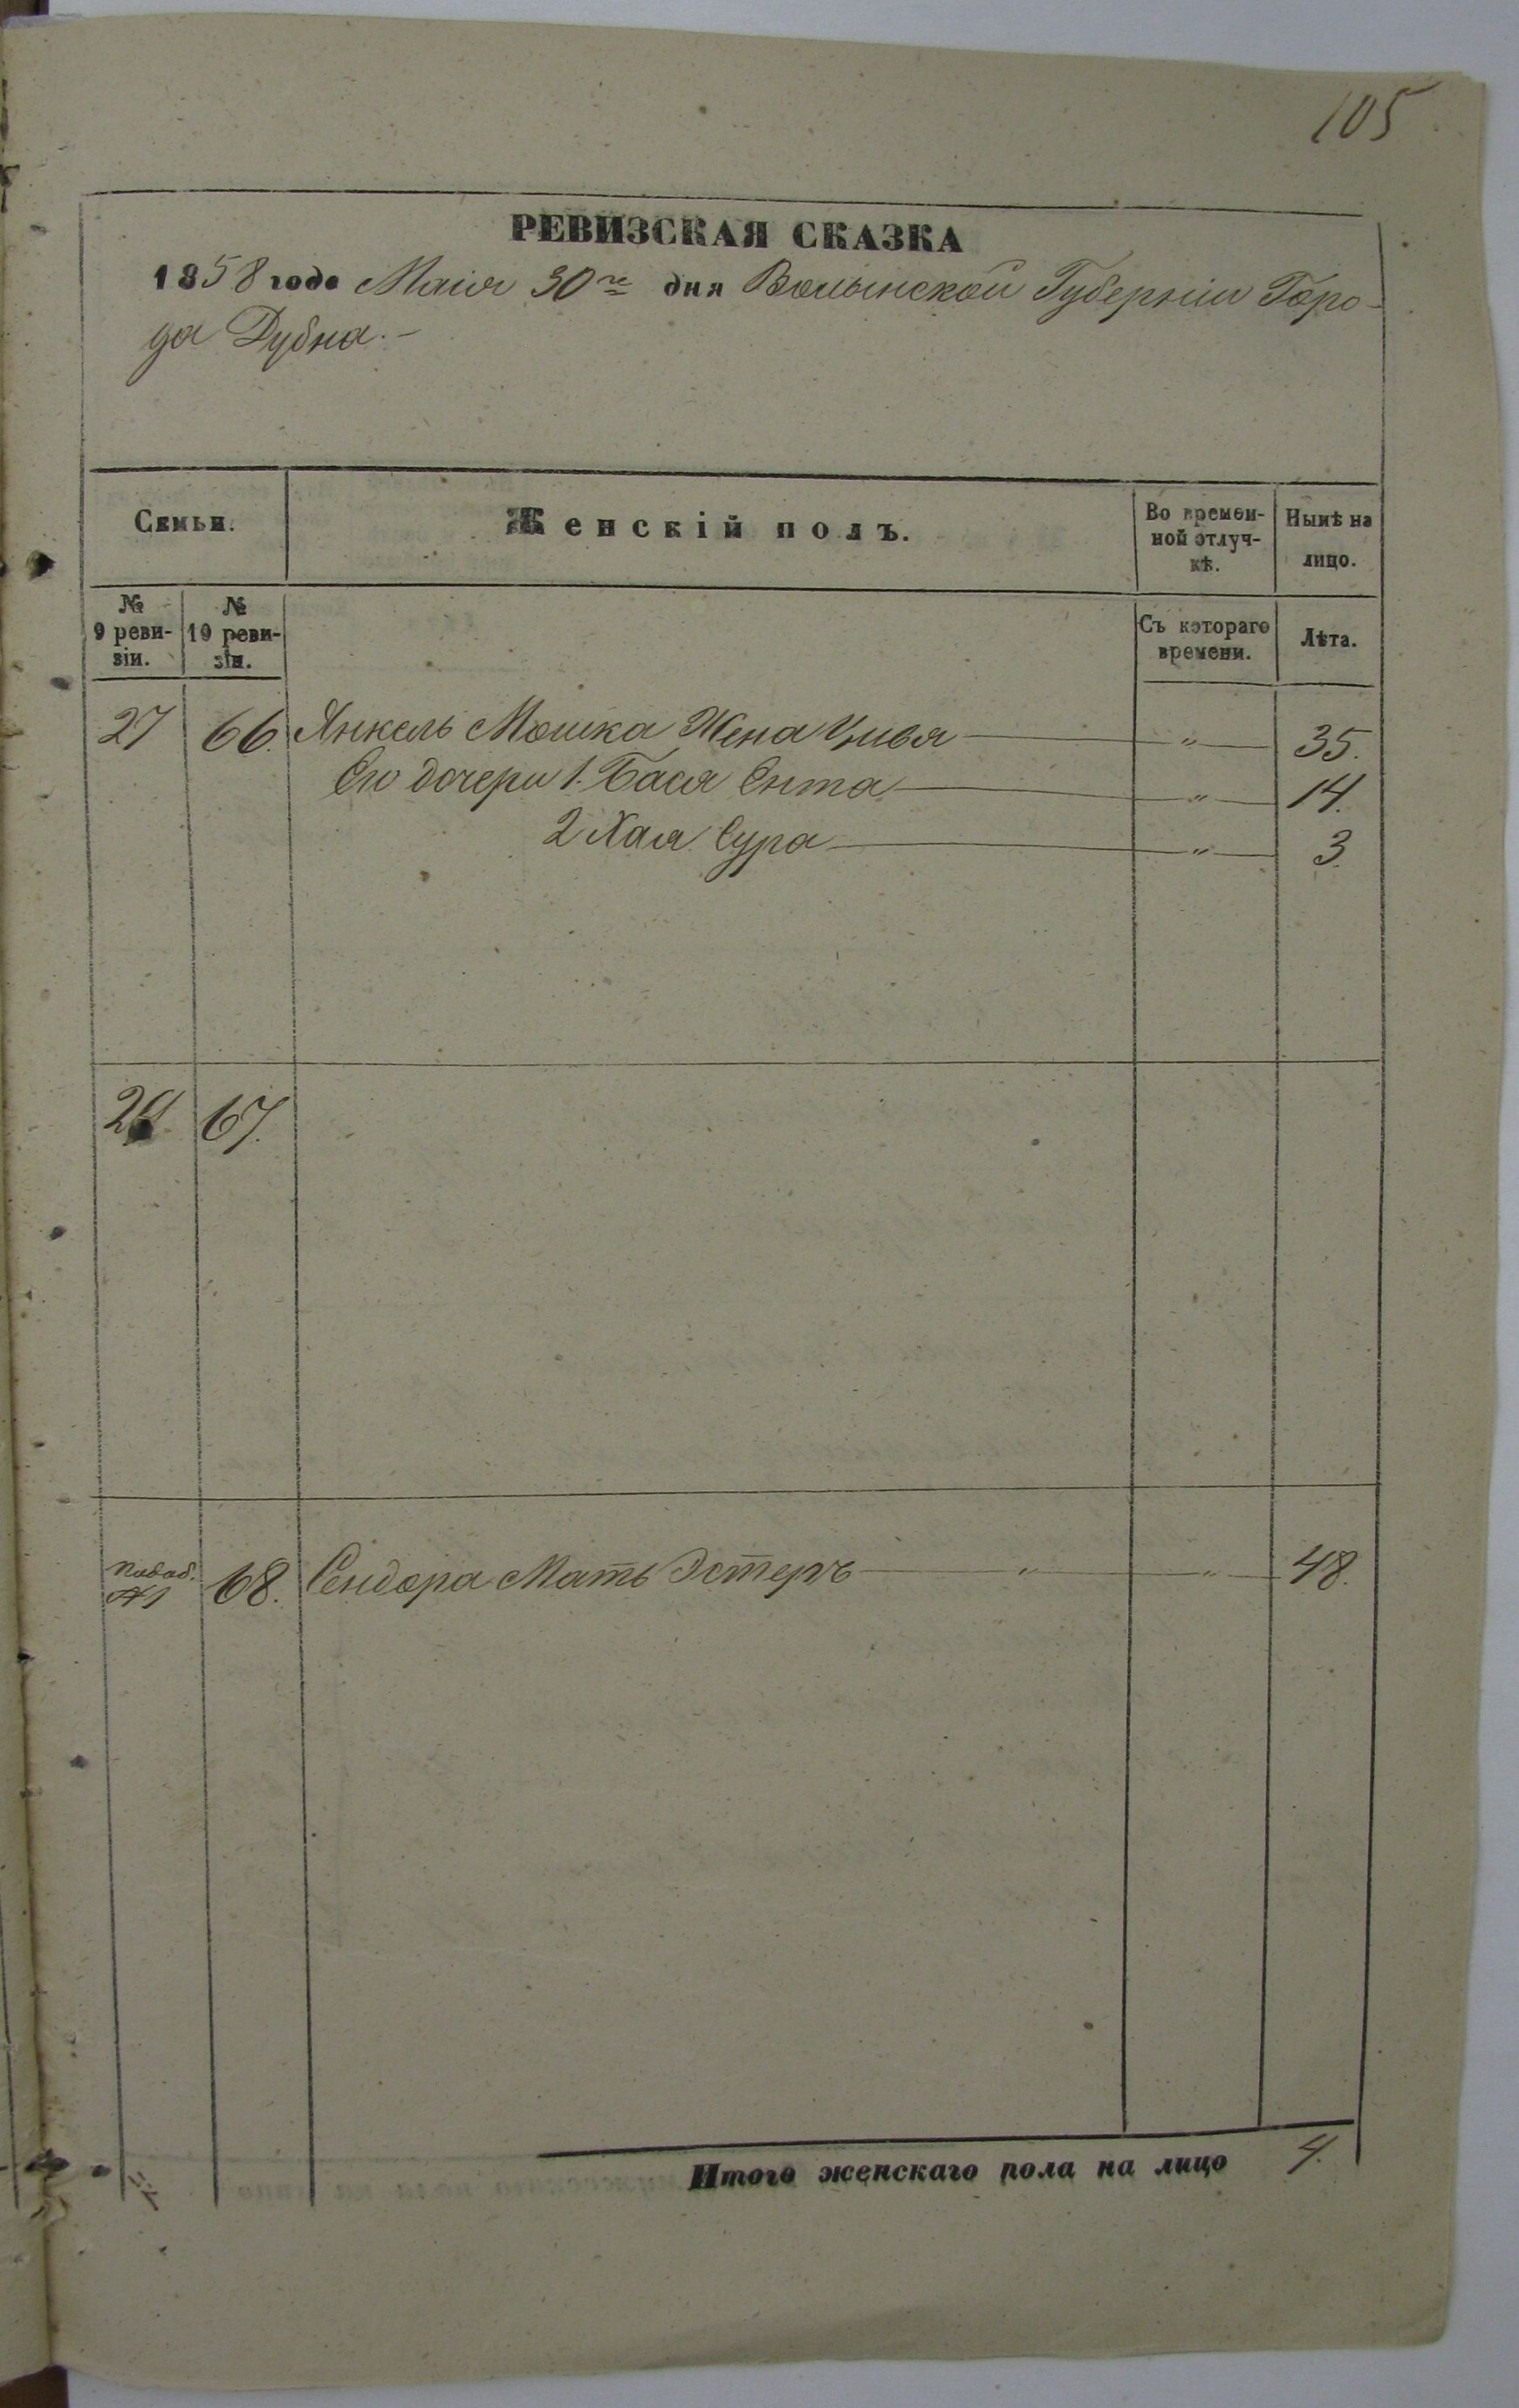 105
РЕВИЗСКАЯ СКАЗКА
1858 года Маія 30го дня Волынской Губерніи Горо-
да Дубна.-
Семьи.
Женскій полъ.
Во времен-
ной отлуч-
кѣ.
Нынѣ на
лицо.
№
9 реви-
зіи.
№
10 реви-
зіи.
Съ котораго
времени.
Лѣта.
27 66. Янкель Мошка Жена Цивя — " — 35.
Его дочери 1. Бася Ента — " — 14.
2 Хая Сура — " — 3.
67.
68. Сендора Мать Эстеръ — " — " — 48.
Итого женскаго пола на лицо 4.